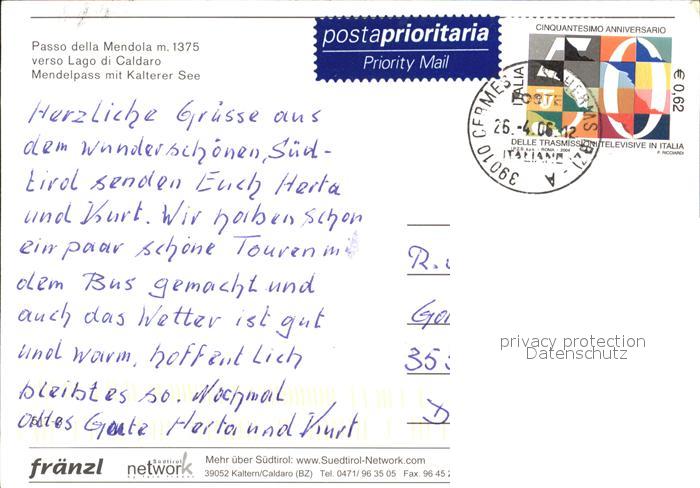 Passo della Mendola m. 1375
verso Lago di Caldaro
Mendelpass mit Kalterer See
postaprioritaria
Priority Mail
CINQUANTESIMO ANNIVERSARIO
ITALIA
€ 0,62
DELLE TRASMISSIONI TELEVISIVE IN ITALIA
39010 CERMES
26.-4.06-12
POSTE
ITALIANE
Herzliche Grüsse aus
dem wunderschönen, Süd-
tirol senden Euch Herta
und Kurt. Wir haben schon
ein paar schöne Touren mi
dem Bus gemacht und
auch das Wetter ist gut
und warm, hoffentlich
bleibt es so. Nochmal
alles Gute Herta und Kurt
R.
Ga
35
D
privacy protection
Datenschutz
fränzl
Südtirol
network
Mehr über Südtirol: www.Suedtirol-Network.com
39052 Kaltern/Caldaro (BZ) Tel. 0471/ 96 35 05 Fax. 96 45 2